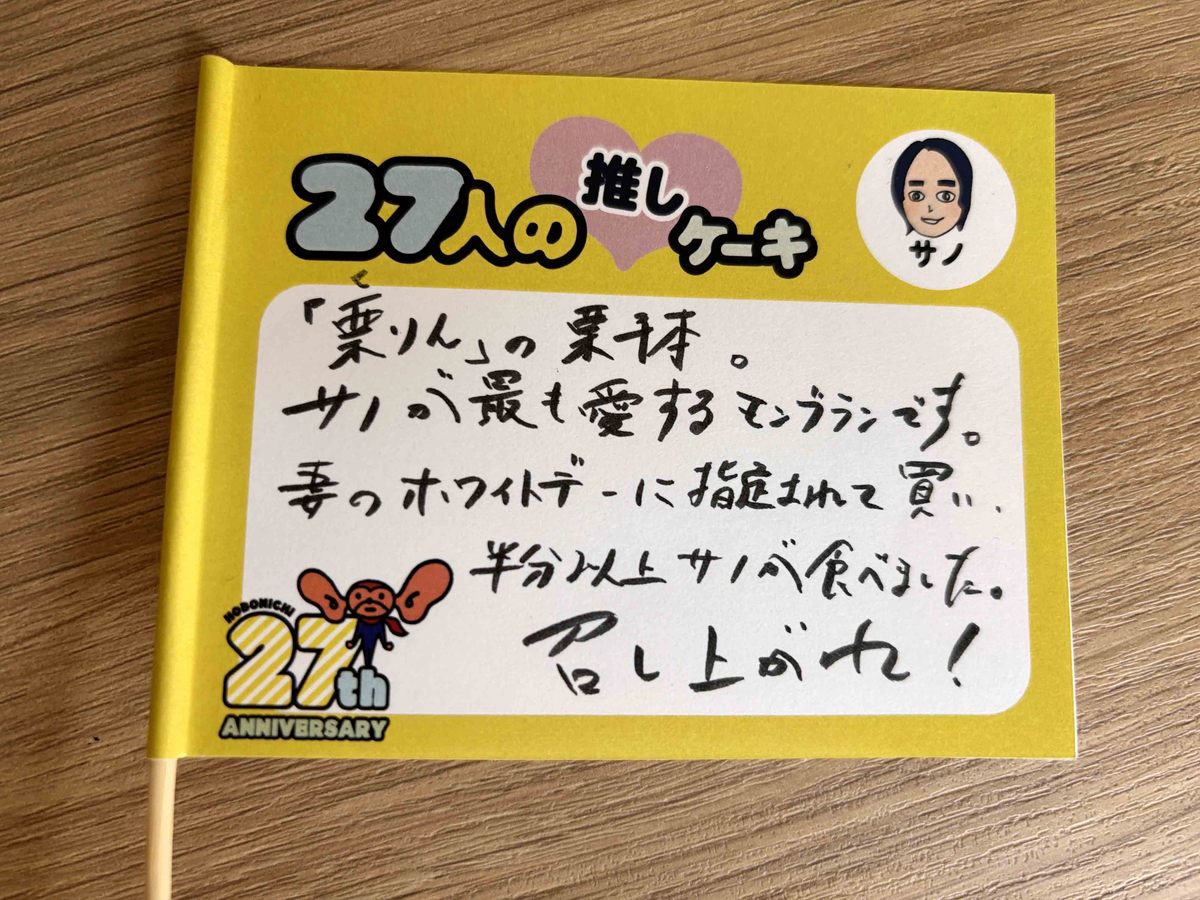 27人の推しケーキ
サノ
く
「栗りん」の栗千本。
サノが最も愛するモンブランです。
妻のホワイトデーに指定されて買い、
半分以上サノが食べました。
召し上がれ!
HOBONICHI
27th
ANNIVERSARY